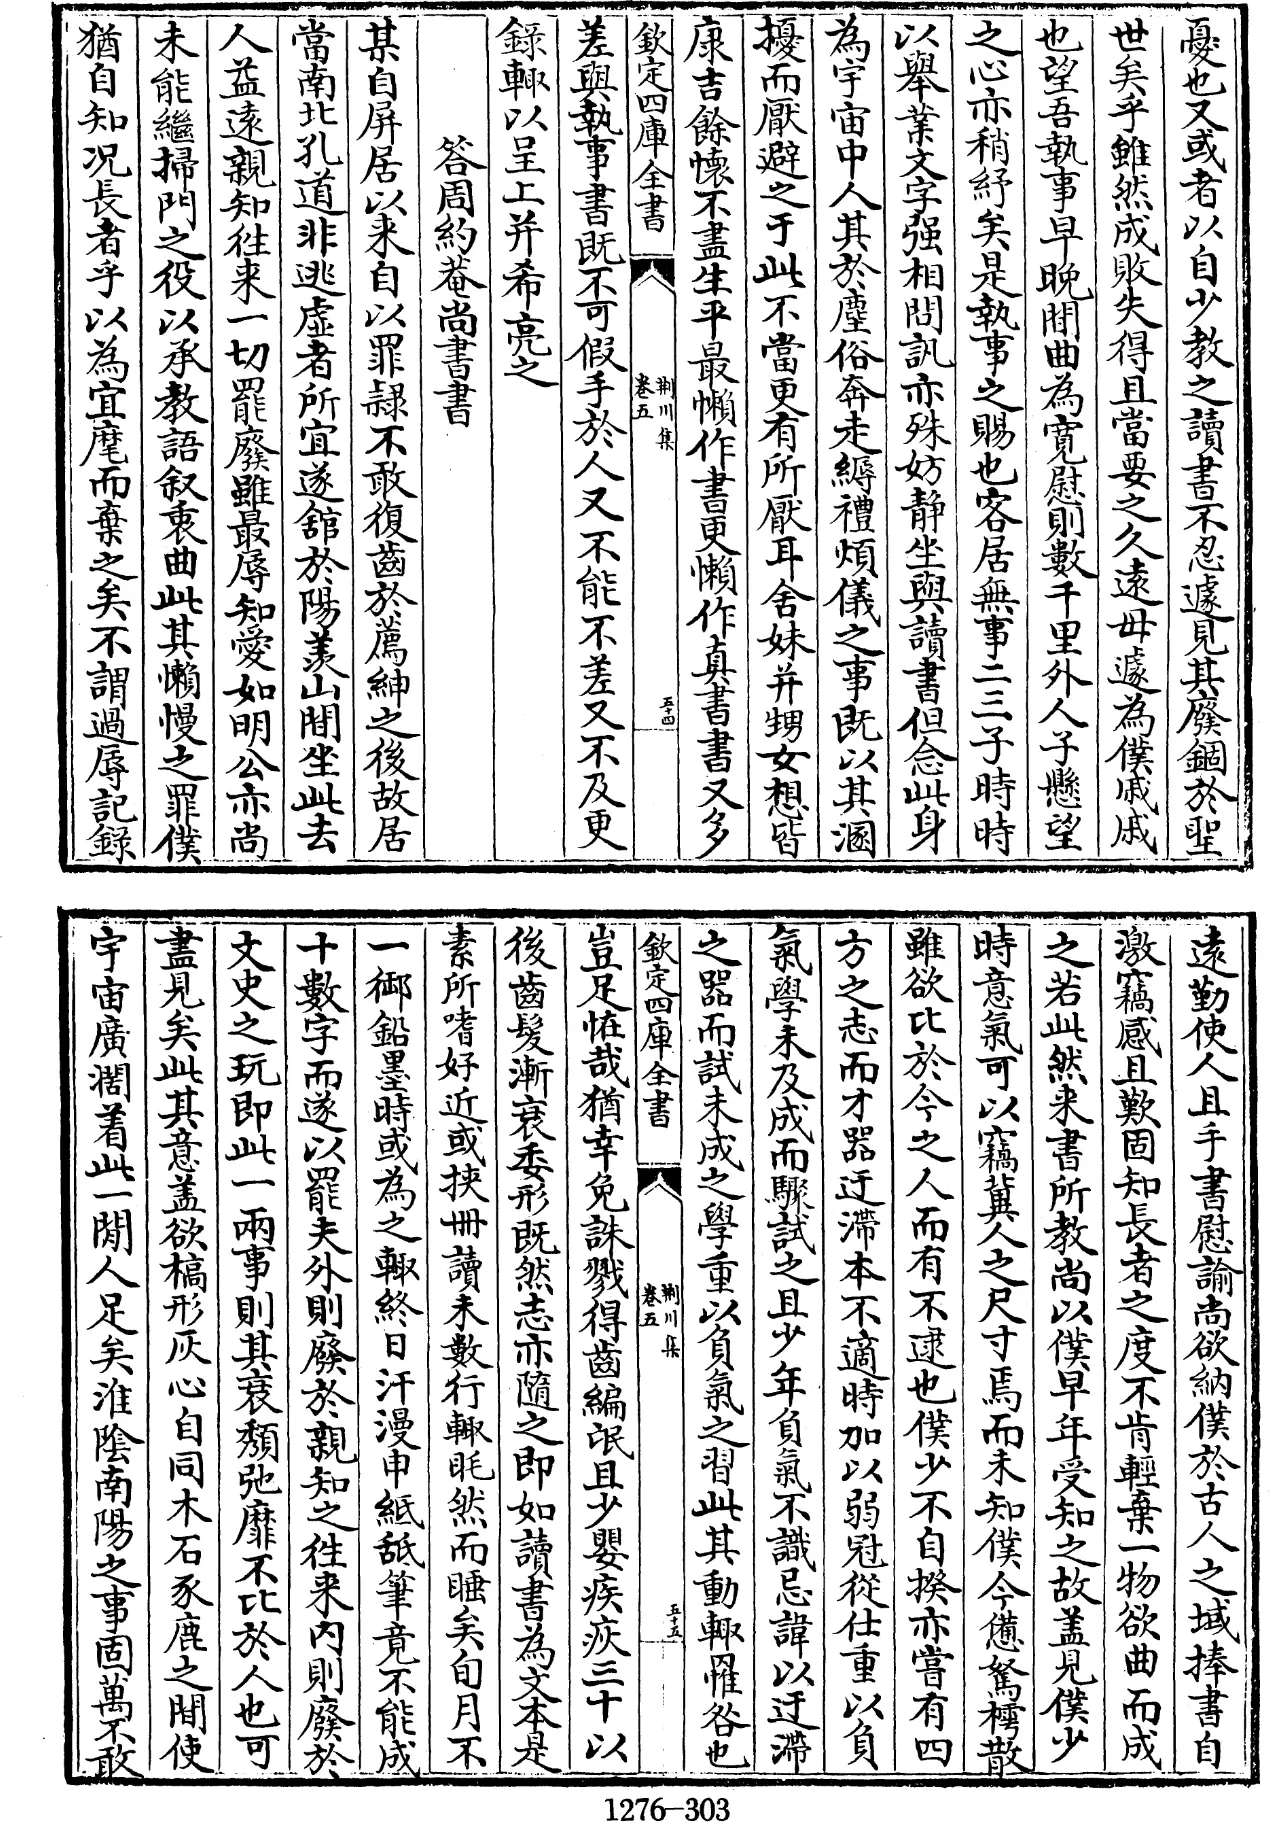 憂也又或者以自少教之讀書不忍遽見其廢錮於聖
世矣乎雖然成敗失得且當要之久遠毋遽為僕戚戚
也望吾執事早晚閒曲為寛慰則數千里外人子懸望
之心亦稍紓矣是執事之賜也客居無事二三子時時
以舉業文字强相問訊亦殊妨靜坐與讀書但念此身
為宇宙中人其於塵俗奔走縟禮煩儀之事既以其溷
擾而厭避之于此不當更有所厭耳舍妹并甥女想皆
康吉餘懷不盡生平最懶作書更懶作真書書又多
欽定四庫全書
荆川集
卷五
五十四
差與執事書既不可假手於人又不能不差又不及更
錄輙以呈上并希亮之
答周約菴尚書書
某自屏居以来自以罪隷不敢復齒於薦紳之後故居
當南北孔道非逃虛者所宜遂舘於陽羨山閒坐此去
人益遠親知徃来一切罷廢雖最辱知愛如明公亦尚
未能繼掃門之役以承教語叙衷曲此其懶慢之罪僕
猶自知况長者乎以為宜麾而棄之矣不謂過辱記錄
遠勤使人且手書慰諭尚欲納僕於古人之域捧書自
激竊感且歎固知長者之度不肯輕棄一物欲曲而成
之若此然来書所教尚以僕早年受知之故盖見僕少
時意氣可以竊冀人之尺寸焉而未知僕今憊駑樗散
雖欲比於今之人而有不逮也僕少不自揆亦嘗有四
方之志而才器迂滯本不適時加以弱冠從仕重以負
氣學未及成而驟試之且少年負氣不識忌諱以迂滯
之器而試未成之學重以負氣之習此其動輙罹咎也
欽定四庫全書
荆川集
卷五
五十五
豈足怪哉猶幸免誅戮得齒編氓且少嬰疾疢三十以
後齒髮漸衰委形既然志亦隨之即如讀書為文本是
素所嗜好近或挾冊讀未數行輙眊然而睡矣旬月不
一御鉛墨時或為之輙終日汗漫申紙舐筆竟不能成
十數字而遂以罷夫外則廢於親知之徃来内則廢於
文史之玩即此一兩事則其衰頽弛靡不比於人也可
盡見矣此其意盖欲槁形灰心自同木石豕鹿之閒使
宇宙廣濶着此一閒人足矣淮陰南陽之事固萬不敢
1276-303